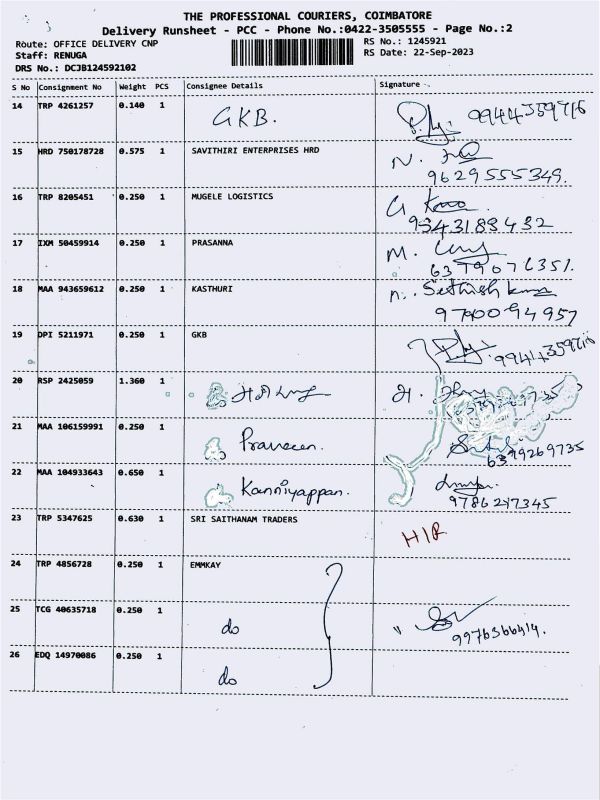 THE PROFESSIONAL COURIERS, COIMBATORE
Delivery Runsheet - PCC - Phone No.:0422-3505555 - Page No.:2
Route: OFFICE DELIVERY CNP
RS No.: 1245921
Staff: RENUGA
RS Date: 22-Sep-2023
DRS No.: DCJB124592102
S No Consignment No Weight PCS Consignee Details Signature
14 TRP 4261257 0.140 1 GKB. 9944359716
15 HRD 750178728 0.575 1 SAVITHIRI ENTERPRISES HRD N.
9629555349.
16 TRP 8205451 0.250 1 MUGELE LOGISTICS
9543188432
17 IXM 50459914 0.250 1 PRASANNA M.
6379076351.
18 MAA 943659612 0.250 1 KASTHURI n. Sethish kumar
9790094957
19 DPI 5211971 0.250 1 GKB 9944359716
20 RSP 2425059 1.360 1 H.
21 MAA 106159991 0.250 1 Praveeen.
6379269735
22 MAA 104933643 0.650 1 Kanniyappan.
9786217345
23 TRP 5347625 0.630 1 SRI SAITHANAM TRADERS H/R
24 TRP 4856728 0.250 1 EMMKAY
25 TCG 40635718 0.250 1 do
9976366414.
26 EDQ 14970086 0.250 1 do